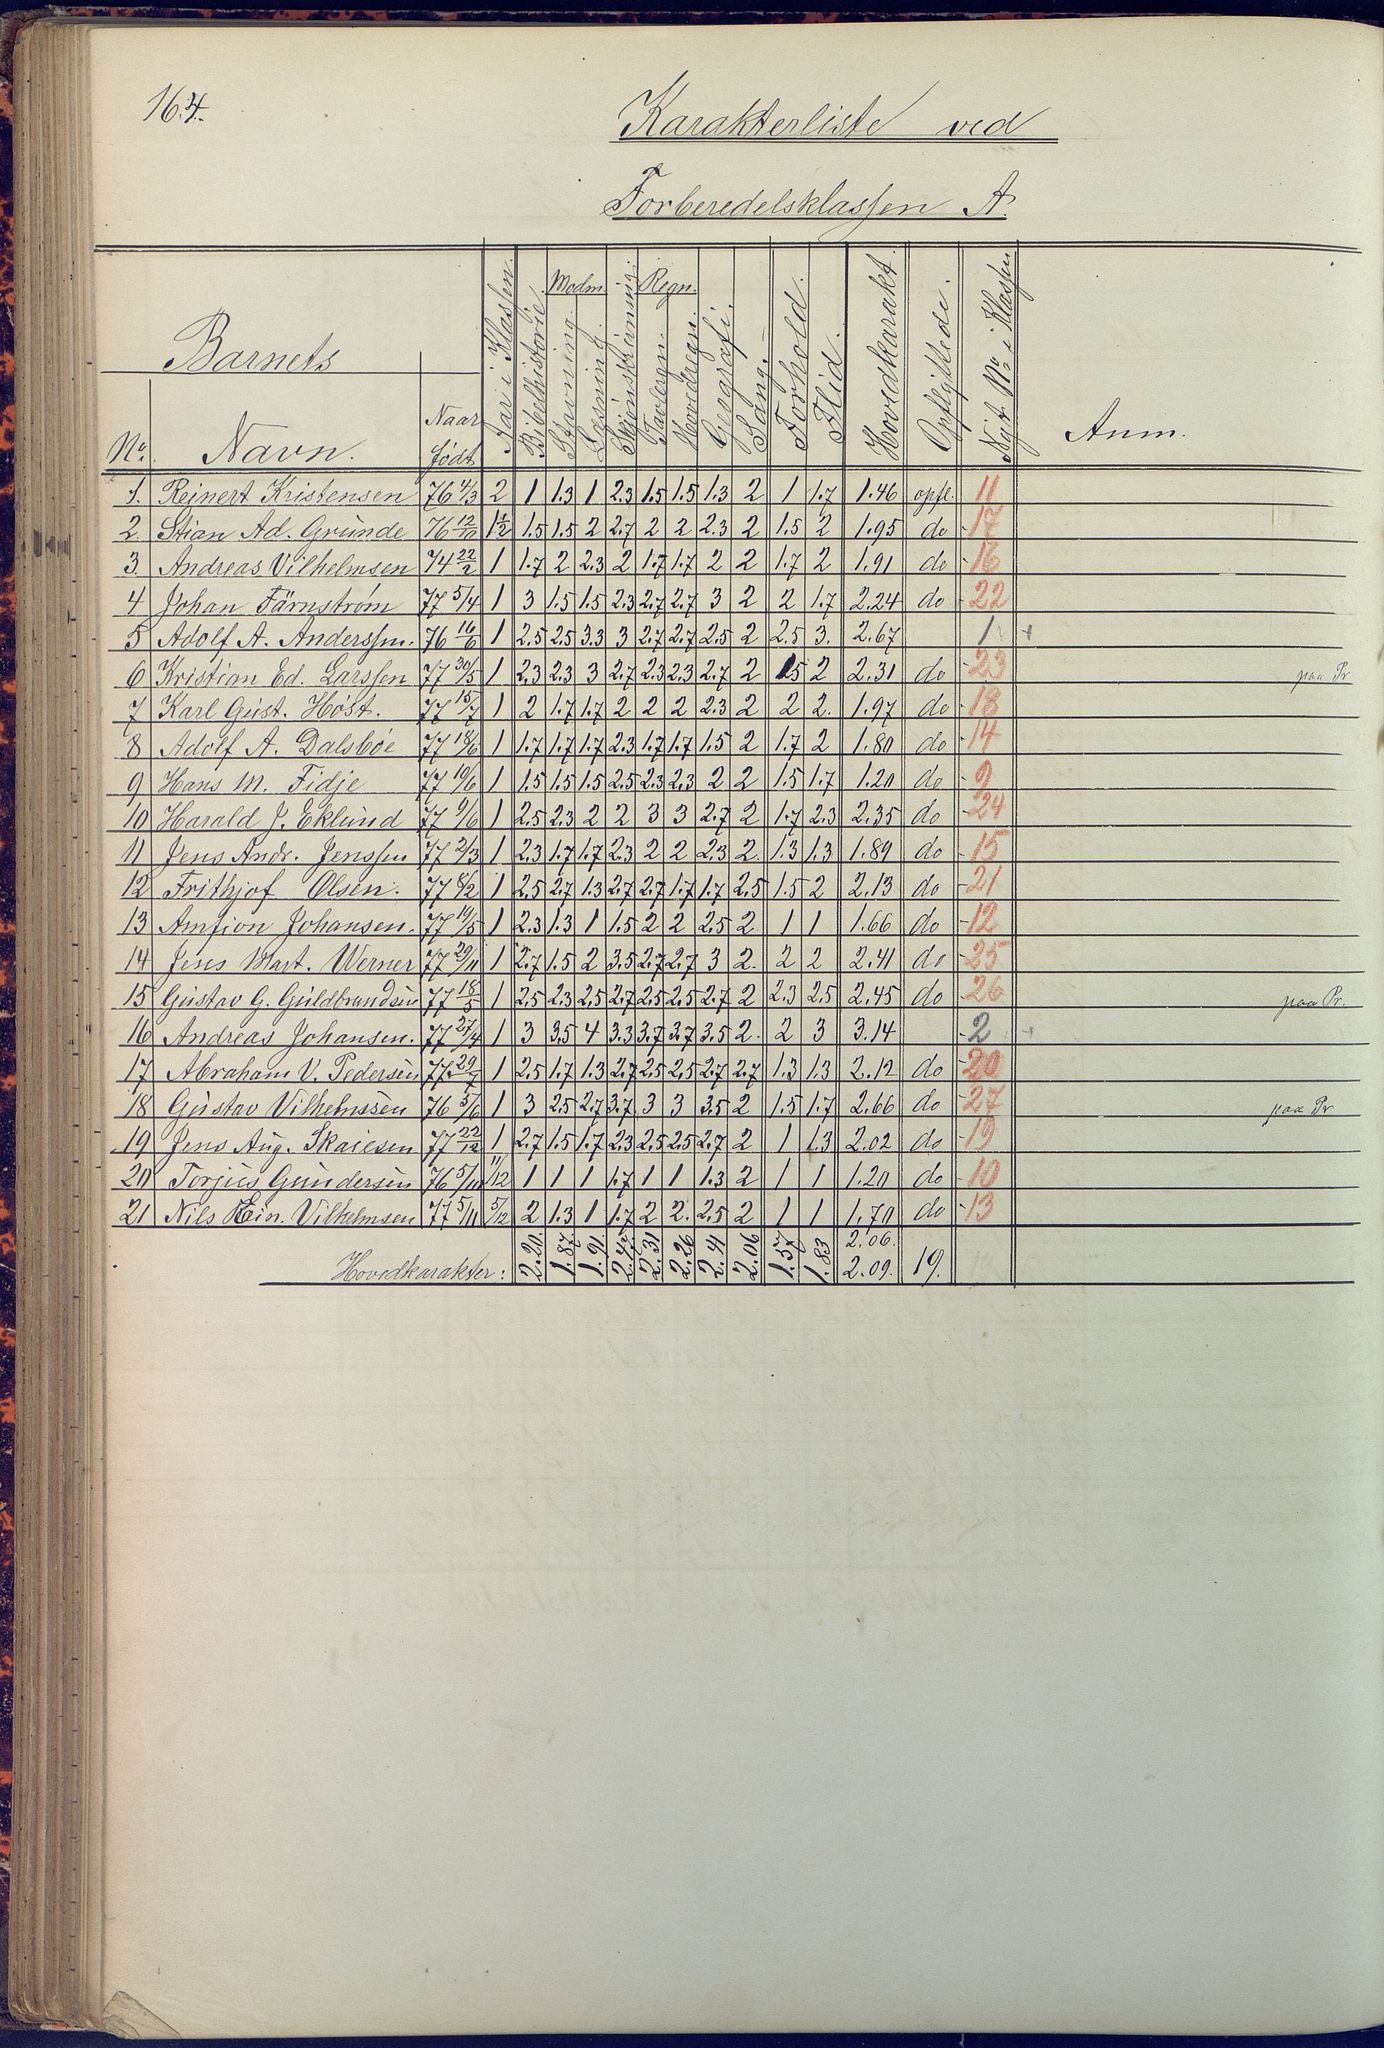 164.
Karakterliste ved
Forberedelsklassen A.
Barnets
No. Navn. Naar født Aar i Klassen. Bibelhistorie. Modm. Stavning. Læsning. Skjønskrivning. Regn. Tavleregn. Hovedregn. Geografi. Sang. Forhold. Flid. Hovedkarakt. Opflyttede. Nyt No. i Klassen Anm.
1. Reinert Kristensen 76 4/3 2 1 1.3 1 2.3 1.5 1.5 1.3 2 1 1.7 1.46 opfl. 11
2. Stian Ad. Grunde 76 12/10 1½ 1.5 1.5 2 2.7 2 2 2.3 2 1.5 2 1.95 do - 17
3. Andreas Vilhelmsen 74 22/2 1 1.7 2 2.3 2 1.7 1.7 2 2 1.7 2 1.91 do - 16
4 Johan Färnstrøm 77 5/4 1 3 1.5 1.5 2.3 2.7 2.7 3 2 2 1.7 2.24 do - 22
5 Adolf A. Anderssen. 76 16/6 1 2.5 2.5 3.3 3 2.7 2.7 2.5 2 2.5 3. 2.67 1 +
6 Kristian Ed. Larssen 77 30/5 1 2.3 2.3 3 2.7 2.3 2.3 2.7 2 1.5 2 2.31 do - 23 paa Pr
7 Karl Gust. Høst. 77 15/7 1 2 1.7 1.7 2 2 2 2.3 2 2 2. 1.97 do - 18
8 Adolf A. Dalsbøe 77 18/6 1 1.7 1.7 1.7 2.3 1.7 1.7 1.5 2 1.7 2 1.80 do - 14
9 Hans M. Fidje 77 10/6 1 1.5 1.5 1.5 2.5 2.3 2.3 2 2 1.5 1.7 1.20 do - 9
10 Harald J. Eklund 77 9/6 1 2.5 2.3 2 2 3 3 2.7 2 1.7 2.3 2.35 do - 24
11 Jens Andr. Jenssen 77 2/3 1 2.3 1.7 1.7 2.3 2 2 2.3 2. 1.3 1.3 1.89 do - 15
12 Frithjof Olsen. 77 8/2 1 2.5 2.7 1.3 2.7 2.7 1.7 1.7 2.5 1.5 2 2.13 do - 21
13 Amfion Johansen. 77 19/5 1 2.3 1.3 1 1.5 2 2 2.5 2. 1 1 1.66 do - 12
14 Jens Mart. Werner 77 29/11 1 2.7 1.5 2 3.5 2.7 2.7 3 2. 2 2 2.41 do - 25
15 Gustav G. Guldbrandsen 77 18/5 1 2.5 2.3 2.5 2.7 2.5 2.5 2.7 2 2.3 2.5 2.45 do - 26 paa Pr.
16 Andreas Johansen. 77 27/4 1 3 3.5 4 3.3 3.7 3.7 3.5 2. 2 3 3.14 - 2 +
17 Abraham V. Pedersen 77 29/7 1 2.5 1.7 1.3 2.7 2.5 2.5 2.7 2.7 1.3 1.3 2.12 do - 20
18 Gustav Vilhelmssen 76 5/6 1 3 2.5 2.7 3.7 3 3 3.5 2 1.5 1.7 2.66 do - 27 paa Pr
19 Jens Aug. Skaiesen 77 22/12 1 2.7 1.5 1.7 2.3 2.5 2.5 2.7 2 1 1.3 2.02 do - 19
20 Torjus Gundersen 76 5/11 11/12 1 1 1 1.7 1 1 1.3 2 1 1 1.20 do - 10
21 Nils Hein. Vilhelmsen 77 5/11 5/12 2 1.3 1 1.7 2 2. 2.5 2 1 1 1.70 do - 13
Hovedkarakter: 2.20. 1.87 1.91. 2.47 2.31 2.26 2.41 2.06 1.57 1.83 2.06. 2.09. 19.